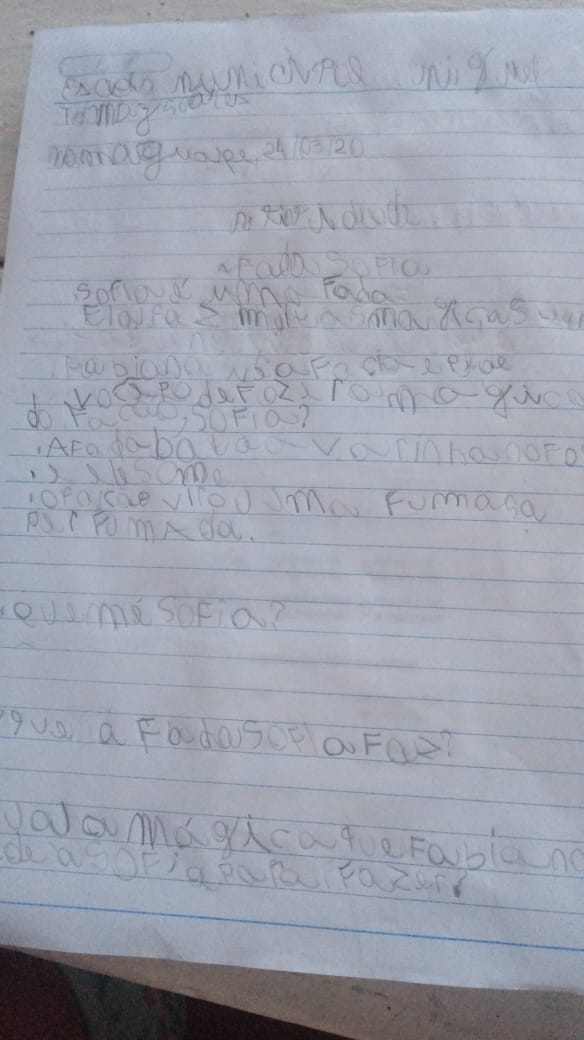 Escola municipal miguel
Tomaz soares
mamaguape, 24/03/20
Atividade
A Fada Sofia
Sofia é uma Fada
Ela faz muitas magicas
Fabiano vê a Fada e pede
você pode Fazer a magica
do Facão, Sofia?
.A Fada bate a varinha no Fo
e ele some
.o Facão virou uma Fumaça
perFumada.
quem é Sofia?
que a Fada Sofia Faz?
ual a mágica que Fabiano
de a SOFia para Fazer?